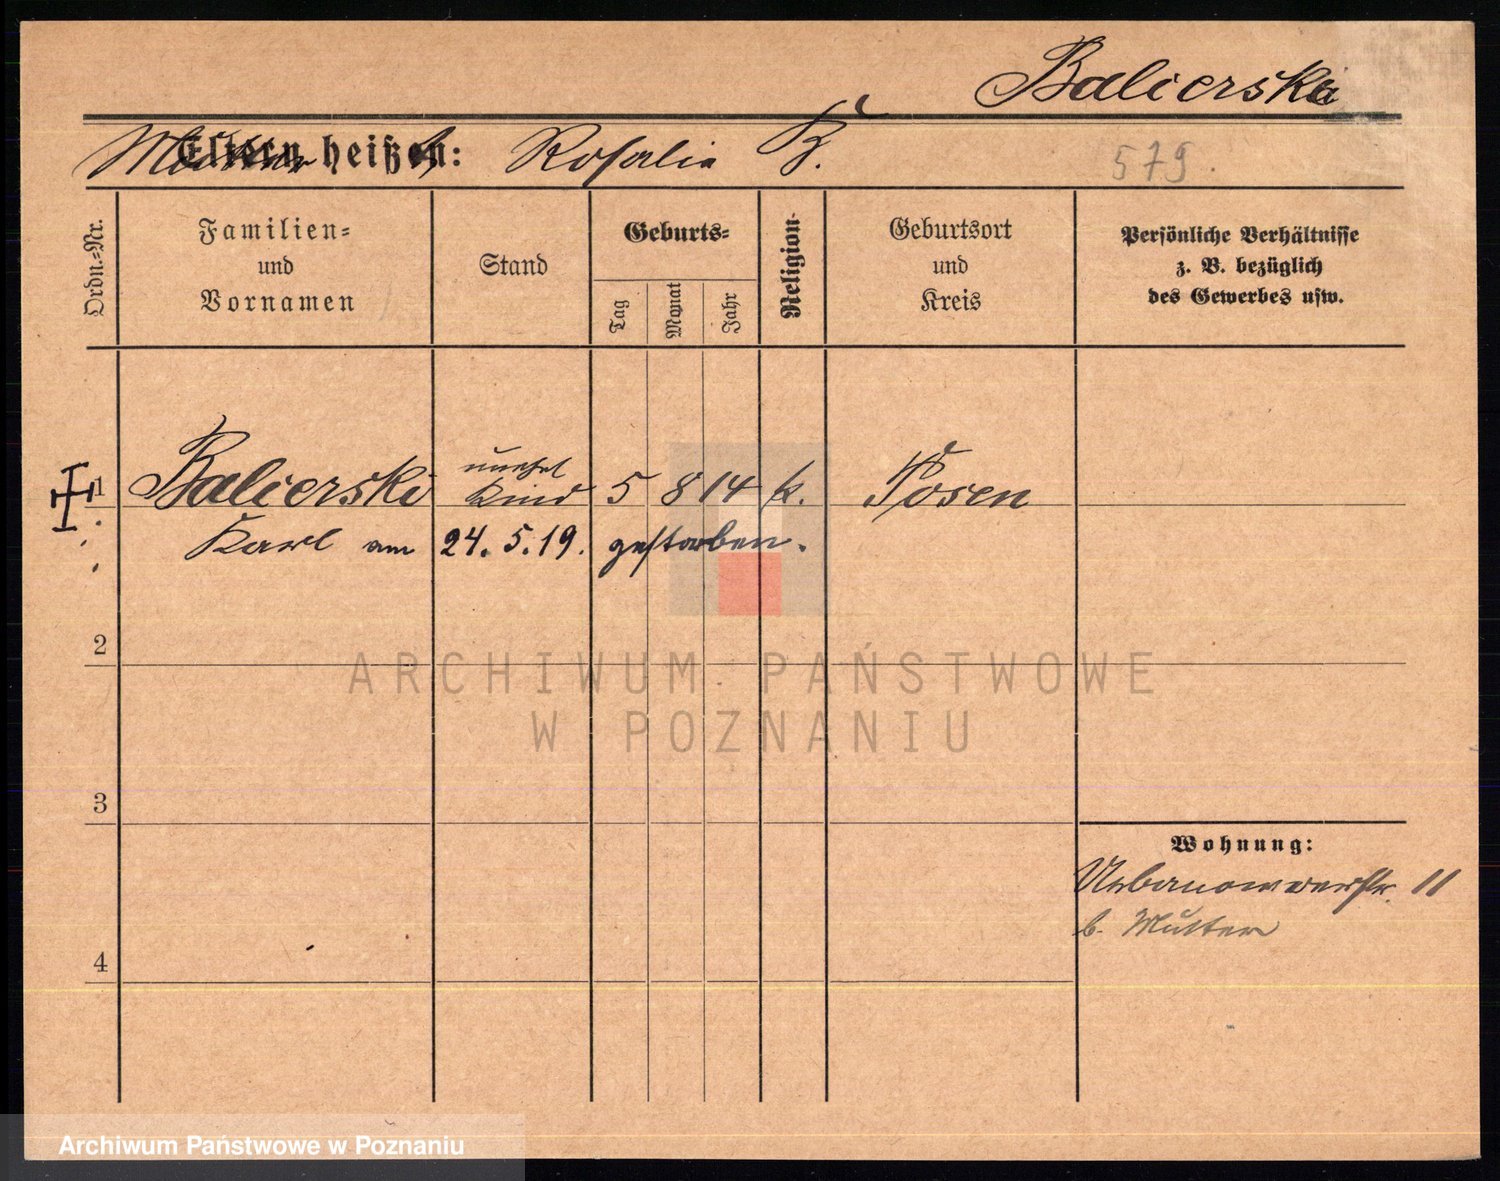 Balierski
Mutter heißt: Rosalie B.
579.
Ordn.-Nr.
Familien-
und
Vornamen
Stand
Geburts-
Tag
Monat
Jahr
Religion
Geburtsort
und
Kreis
Persönliche Verhältnisse
z. B. bezüglich
des Gewerbes usw.
unehel
1 Balierski Kind 5 8 14 k. Posen
Karl am 24. 5. 19. gestorben.
2
ARCHIWUM PAŃSTWOWE
W POZNANIU
3
Wohnung:
11
b. Mutter
4
Archiwum Państwowe w Poznaniu